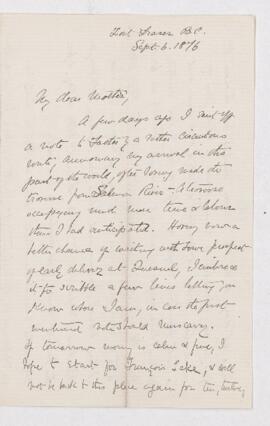 Fort Fraser B.C.
Sept. 6. 1876
My dear Mother,
A few days ago I sent off
a note to Father by a rather circuitous
route, announcing my arrival in this
part of the world, after having made the
traverse from Salmon River
occupying much more time & labour
than I had anticipated. Having now a
better chance of writing with some prospect
of early delivery at Quesnel, I embrace
it to scribble a few lines letting you
know where I am, in case the first
mentioned note should miscarry.
If tomorrow morning is calm & fine, I
hope to start for François Lake, & will
not be back to this place again for ten, twelve,